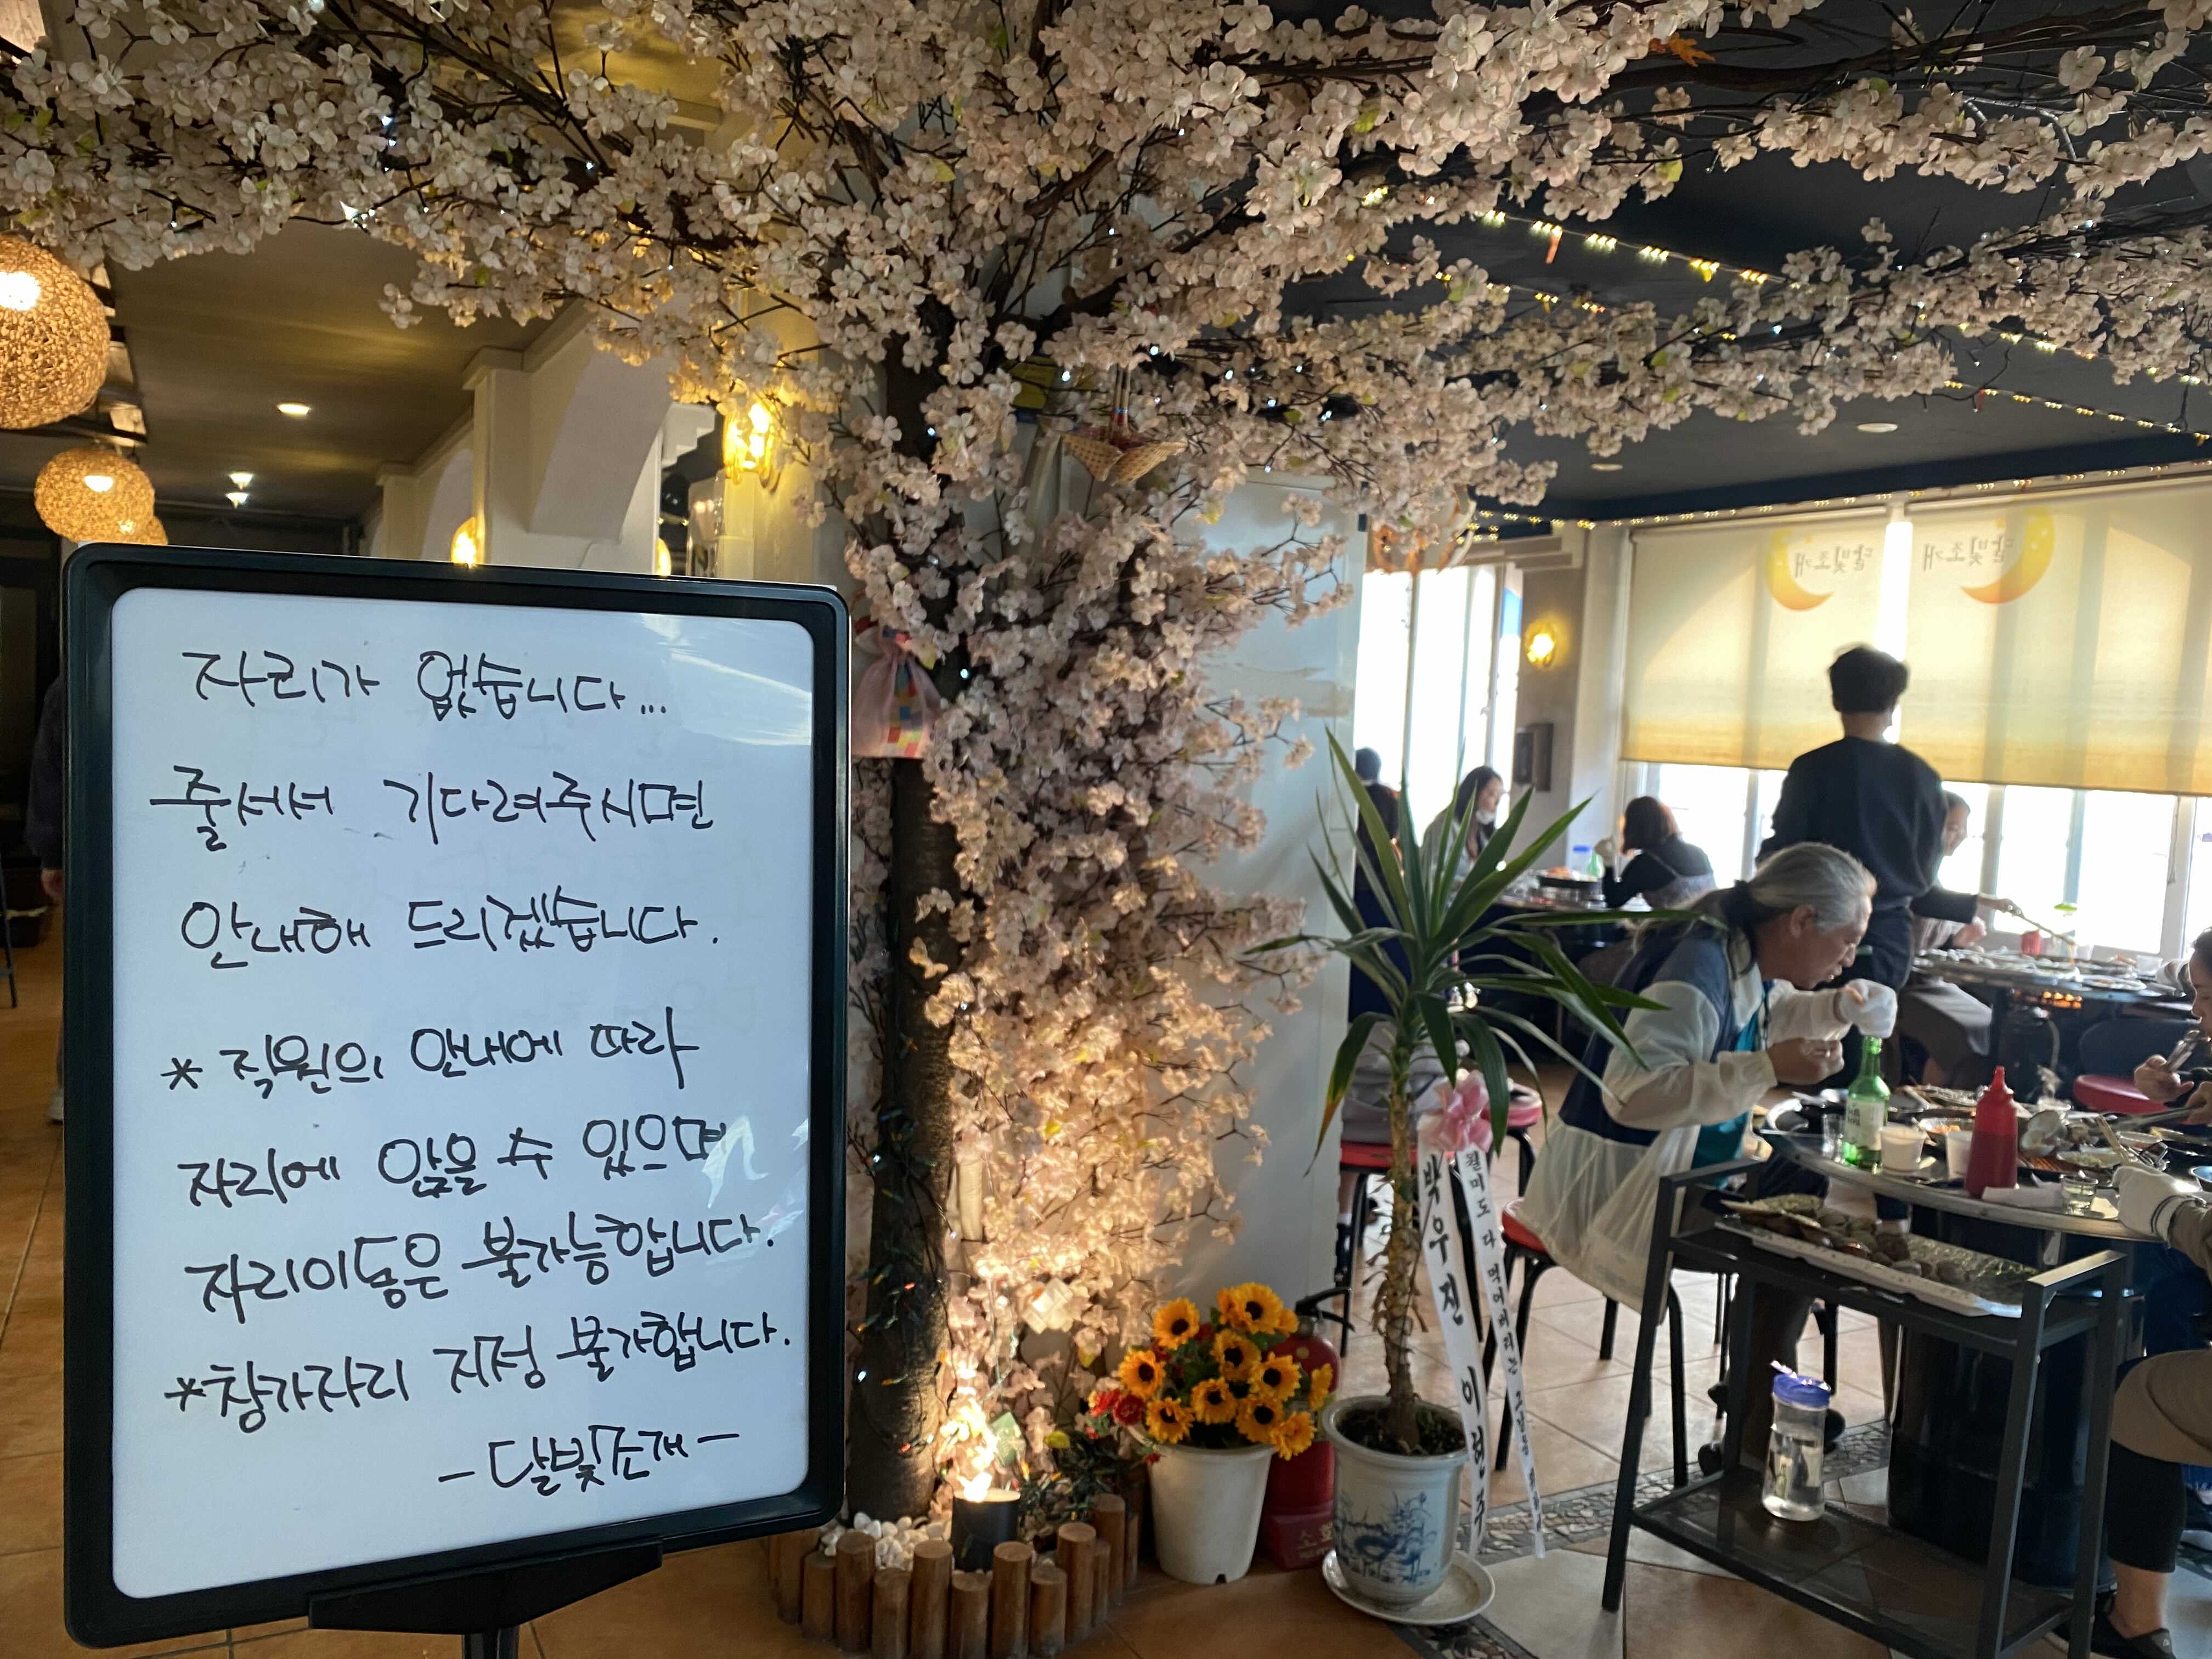 자리가 없습니다...
줄서서 기다려주시면
안내해 드리겠습니다.
* 직원의 안내에 따라
자리에 앉을 수 있으며
자리이동은 불가능합니다.
* 창가자리 지정 불가합니다.
- 달빛조개 -
달빛조개
달빛조개
박우진 이현주
월미도 다 먹어버리는